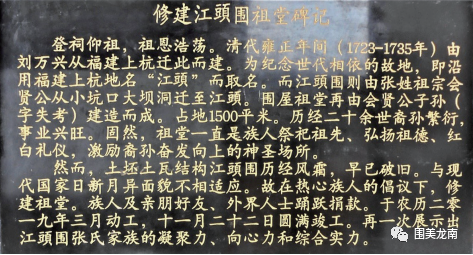 修建江頭围祖堂碑记
登祠仰祖，祖恩浩荡。清代雍正年间（1723-1735年）由
刘万兴从福建上杭迁此而建。为纪念世代相依的故地，即沿
用福建上杭地名“江頭”而取名。而江頭围则由张姓祖宗会
贤公从小坑口大坝洞迁至江頭。围屋祖堂再由会贤公子孙（
字失考）建造而成。占地1500平米。历经二十余世裔孙繁衍，
事业兴旺。固然，祖堂一直是族人祭祀祖先、弘扬祖德、红
白礼仪，激励裔孙奋发向上的神圣场所。
然而，土坯土瓦结构江頭围历经风霜，早已破旧。与现
代国家日新月异面貌不相适应。故在热心族人的倡议下，修
建祖堂。族人及亲朋好友、外界人士踊跃捐款。于农历二零
一九年三月动工，十一月二十二日圆满竣工。再一次展示出
江頭围张氏家族的凝聚力、向心力和综合实力。
围美龙南